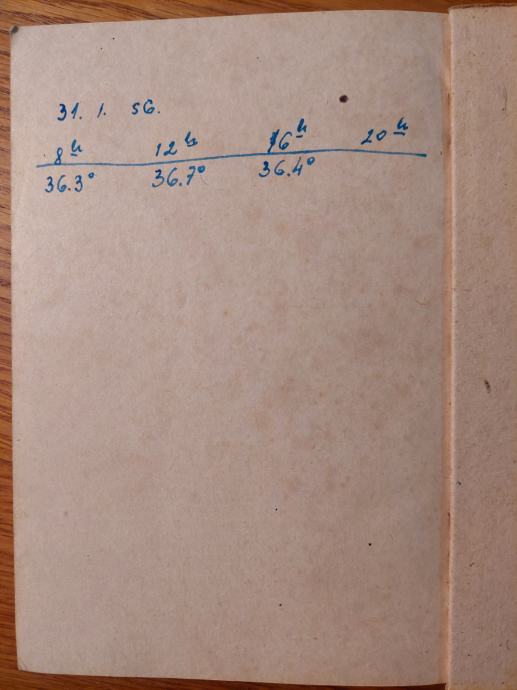 31. 1. 56.
8h 12h 16h 20h
36.3° 36.7° 36.4°